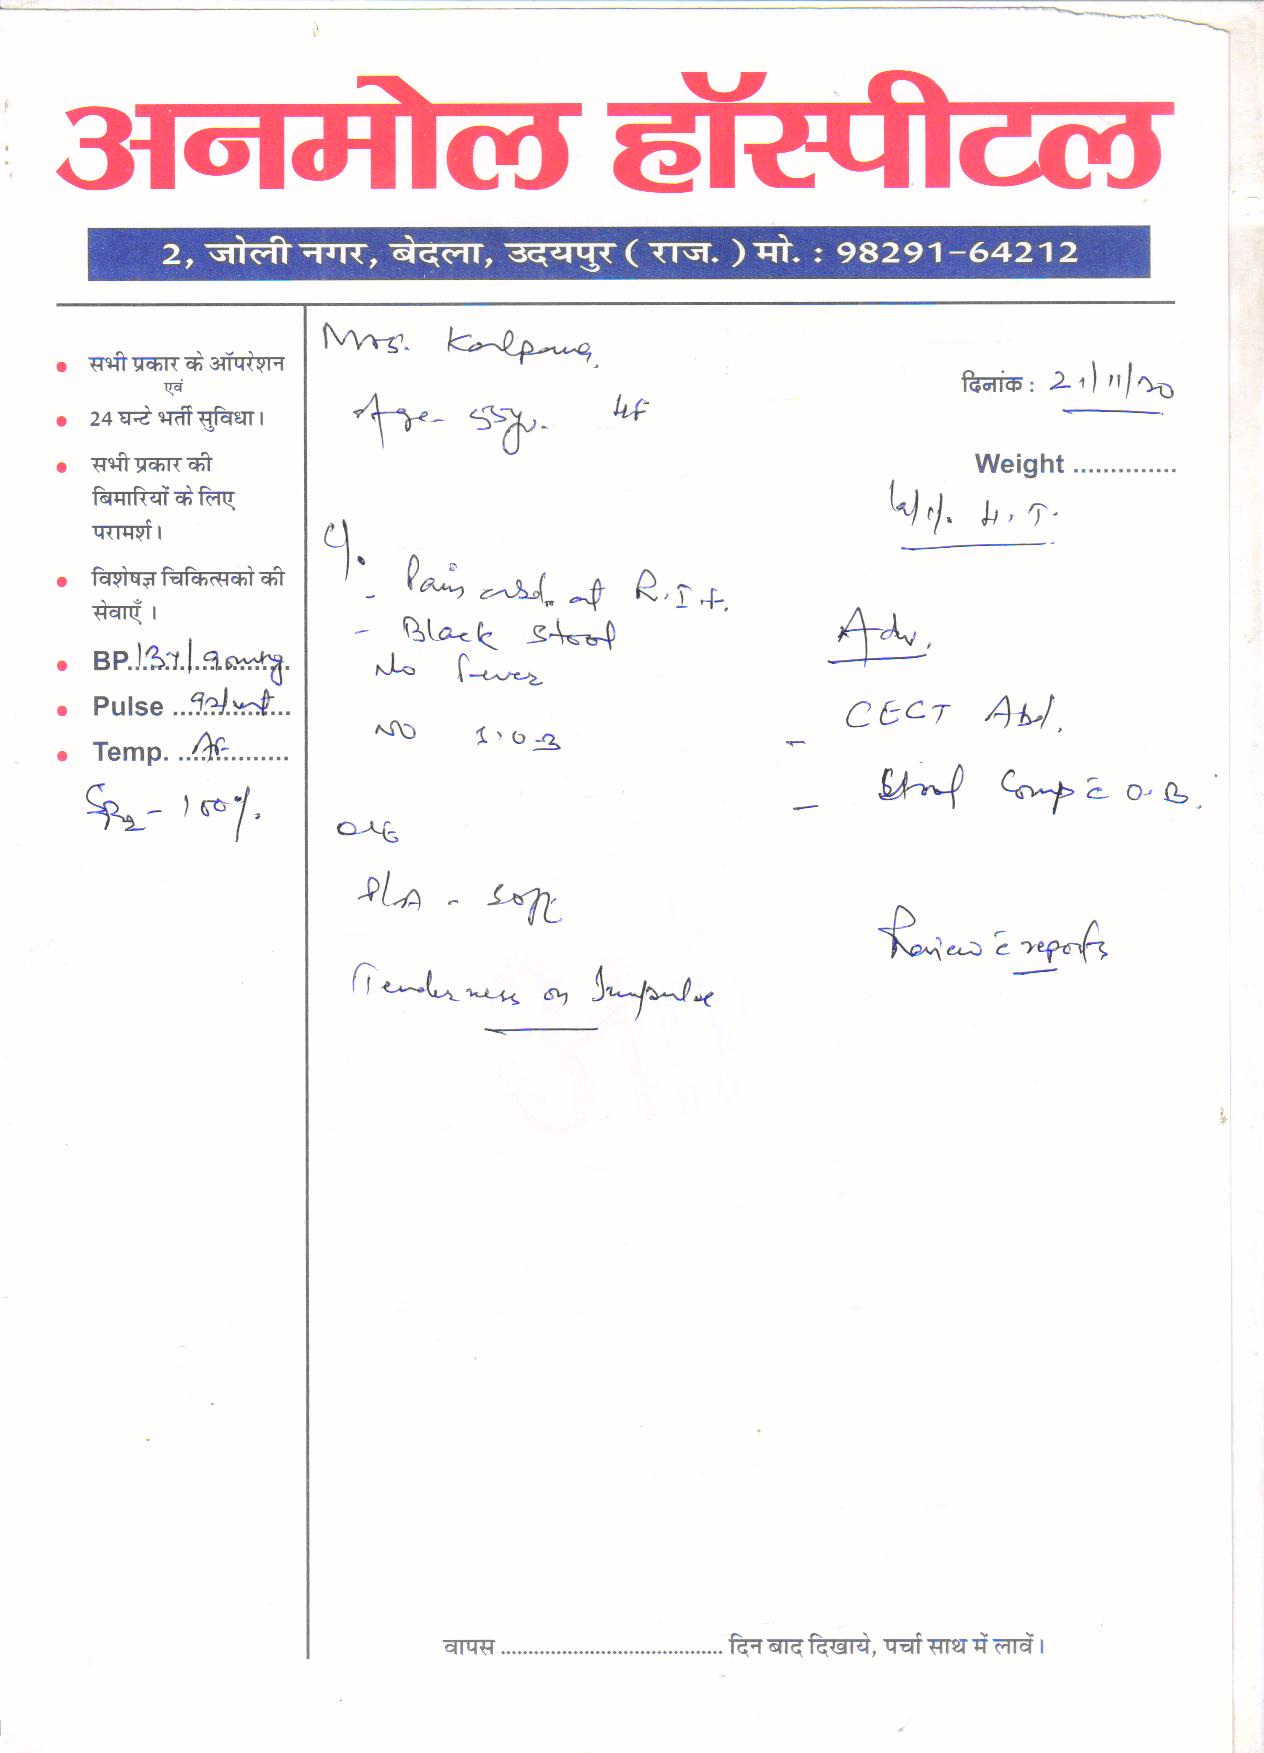 अनमोल हॉस्पीटल
2, जोली नगर, बेदला, उदयपुर ( राज. ) मो. : 98291-64212
सभी प्रकार के ऑपरेशन
एवं
24 घन्टे भर्ती सुविधा।
सभी प्रकार की
बिमारियों के लिए
परामर्श।
विशेषज्ञ चिकित्सको की
सेवाएँ ।
BP. 134/90mmHg
Pulse 92/mt
Temp. Af
SPO2 - 100%.
Mrs. Kalpana
Age - 55y.
दिनांक : 21/11/20
Weight ..............
H. T.
C/o
- Pain abd. at R.I.F.
- Black Stool
No fever
NO I.O.B
O/E
P/A - Soft
Tenderness on Impulse
Adv.
- CECT Abd.
- Stool Comp c̄ O.B.
Review c̄ reports
वापस ....................................... दिन बाद दिखाये, पर्चा साथ में लावें।